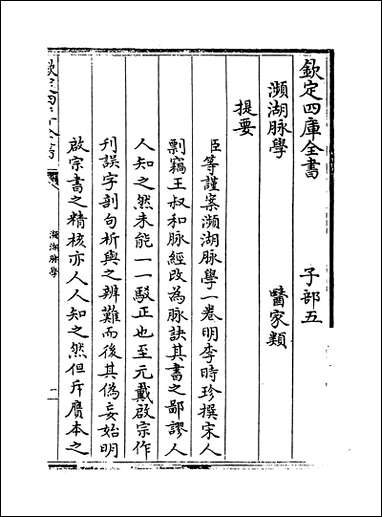 欽定四庫全書　子部五
瀕湖脉學　醫家類
提要
臣等謹案瀕湖脉學一卷明李時珍撰宋人
剽竊王叔和脉經改為脉訣其書之鄙謬人
人知之然未能一一駁正也至元戴啟宗作
刊誤字剖句析與之辨難而後其偽妄始明
啟宗書之精核亦人人知之然但斥贋本之
欽定四庫全書
瀕湖脉學
一